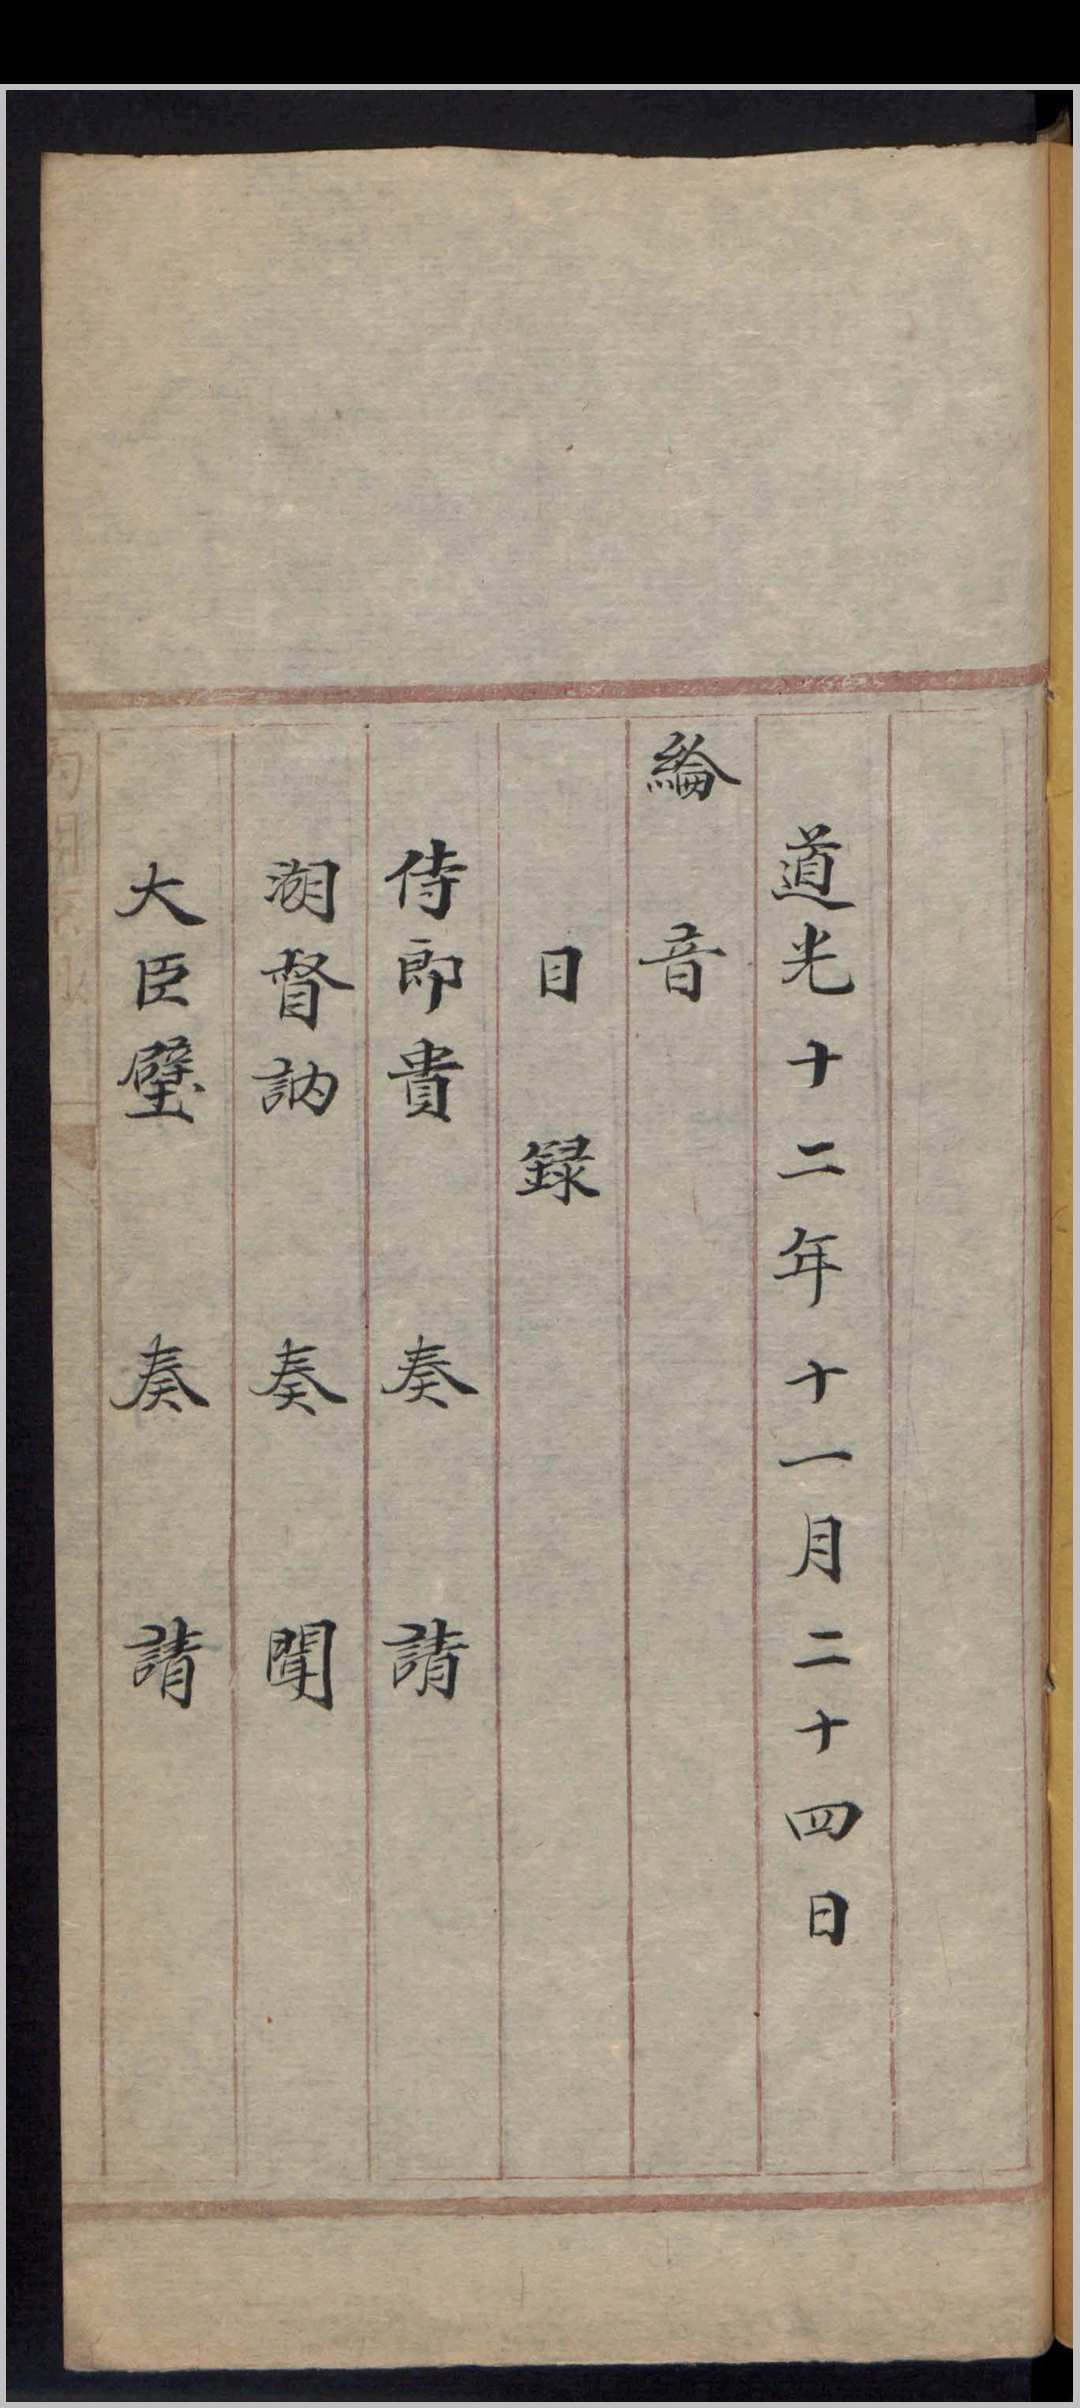 道光十二年十一月二十四日
綸音
目録
侍郎貴 奏請
湖督訥 奏聞
大臣璧 奏請